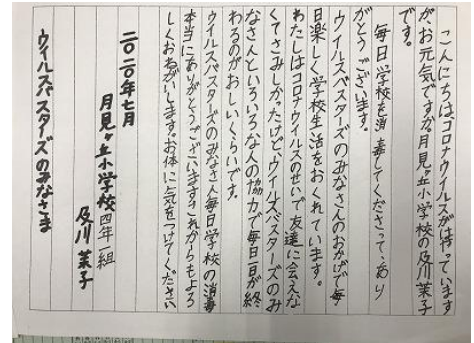 こんにちはコロナウイルスが待っています
が、お元気ですか。月見ヶ丘小学校の及川茉子
です。
毎日学校を消毒してくださって、あり
がとうございます。
ウイルスバスターズのみなさんのおかげで毎
日楽しく学校生活をおくれています。
わたしはコロナウイルスのせいで友達に会えな
くてさみしかったけど、ウイルスバスターズのみ
なさんといろいろな人の協力で毎日一日が終
わるのがおしいくらいです。
ウイルスバスターズのみなさん毎日学校の消毒
本当にありがとうございますこれからもよろ
しくおねがいします。お体に気をつけてください
二〇二〇年七月
月見ヶ丘小学校四年一組
及川茉子
ウイルスバスターズのみなさま